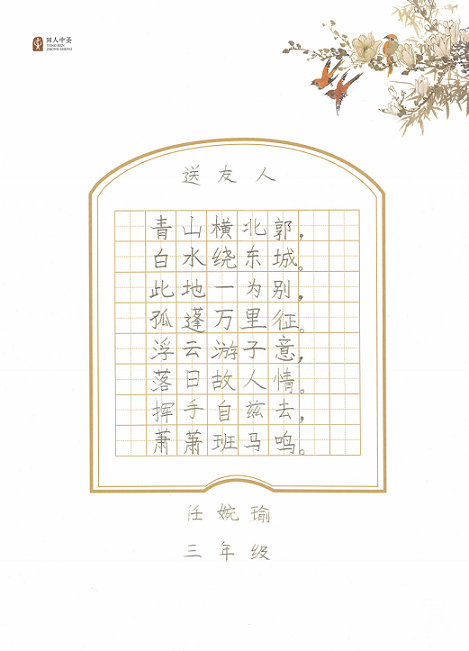 同人中圣
TONGREN
ZHONGSHENG
送友人
青山横北郭，
白水绕东城。
此地一为别，
孤蓬万里征。
浮云游子意，
落日故人情。
挥手自兹去，
萧萧班马鸣。
任婉瑜
三年级